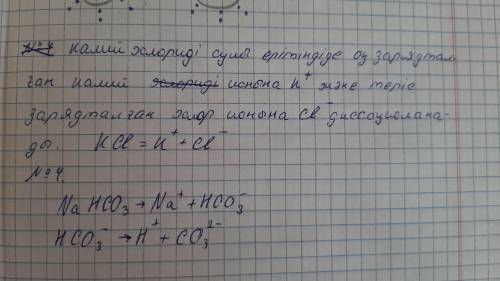 №4 калий хлориді сулы ерітіндіде оң зарядтал
ған калий хлориді ионына K⁺ және теріс
зарядталған хлор ионына Cl⁻ диссоциолана-
ды. KCl = K⁺ + Cl⁻
№4.
NaHCO₃ → Na⁺ + HCO₃⁻
HCO₃⁻ → H⁺ + CO₃²⁻